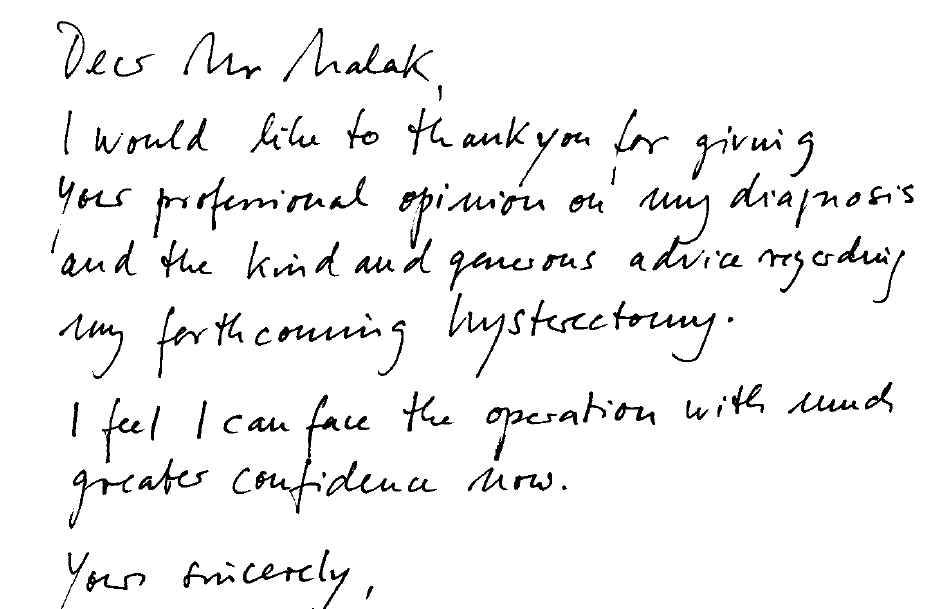 Dear Mr Malak,
I would like to thank you for giving
your professional opinion on my diagnosis
and the kind and generous advice regarding
my forthcoming hysterectomy.
I feel I can face the operation with much
greater confidence now.
Yours sincerely,